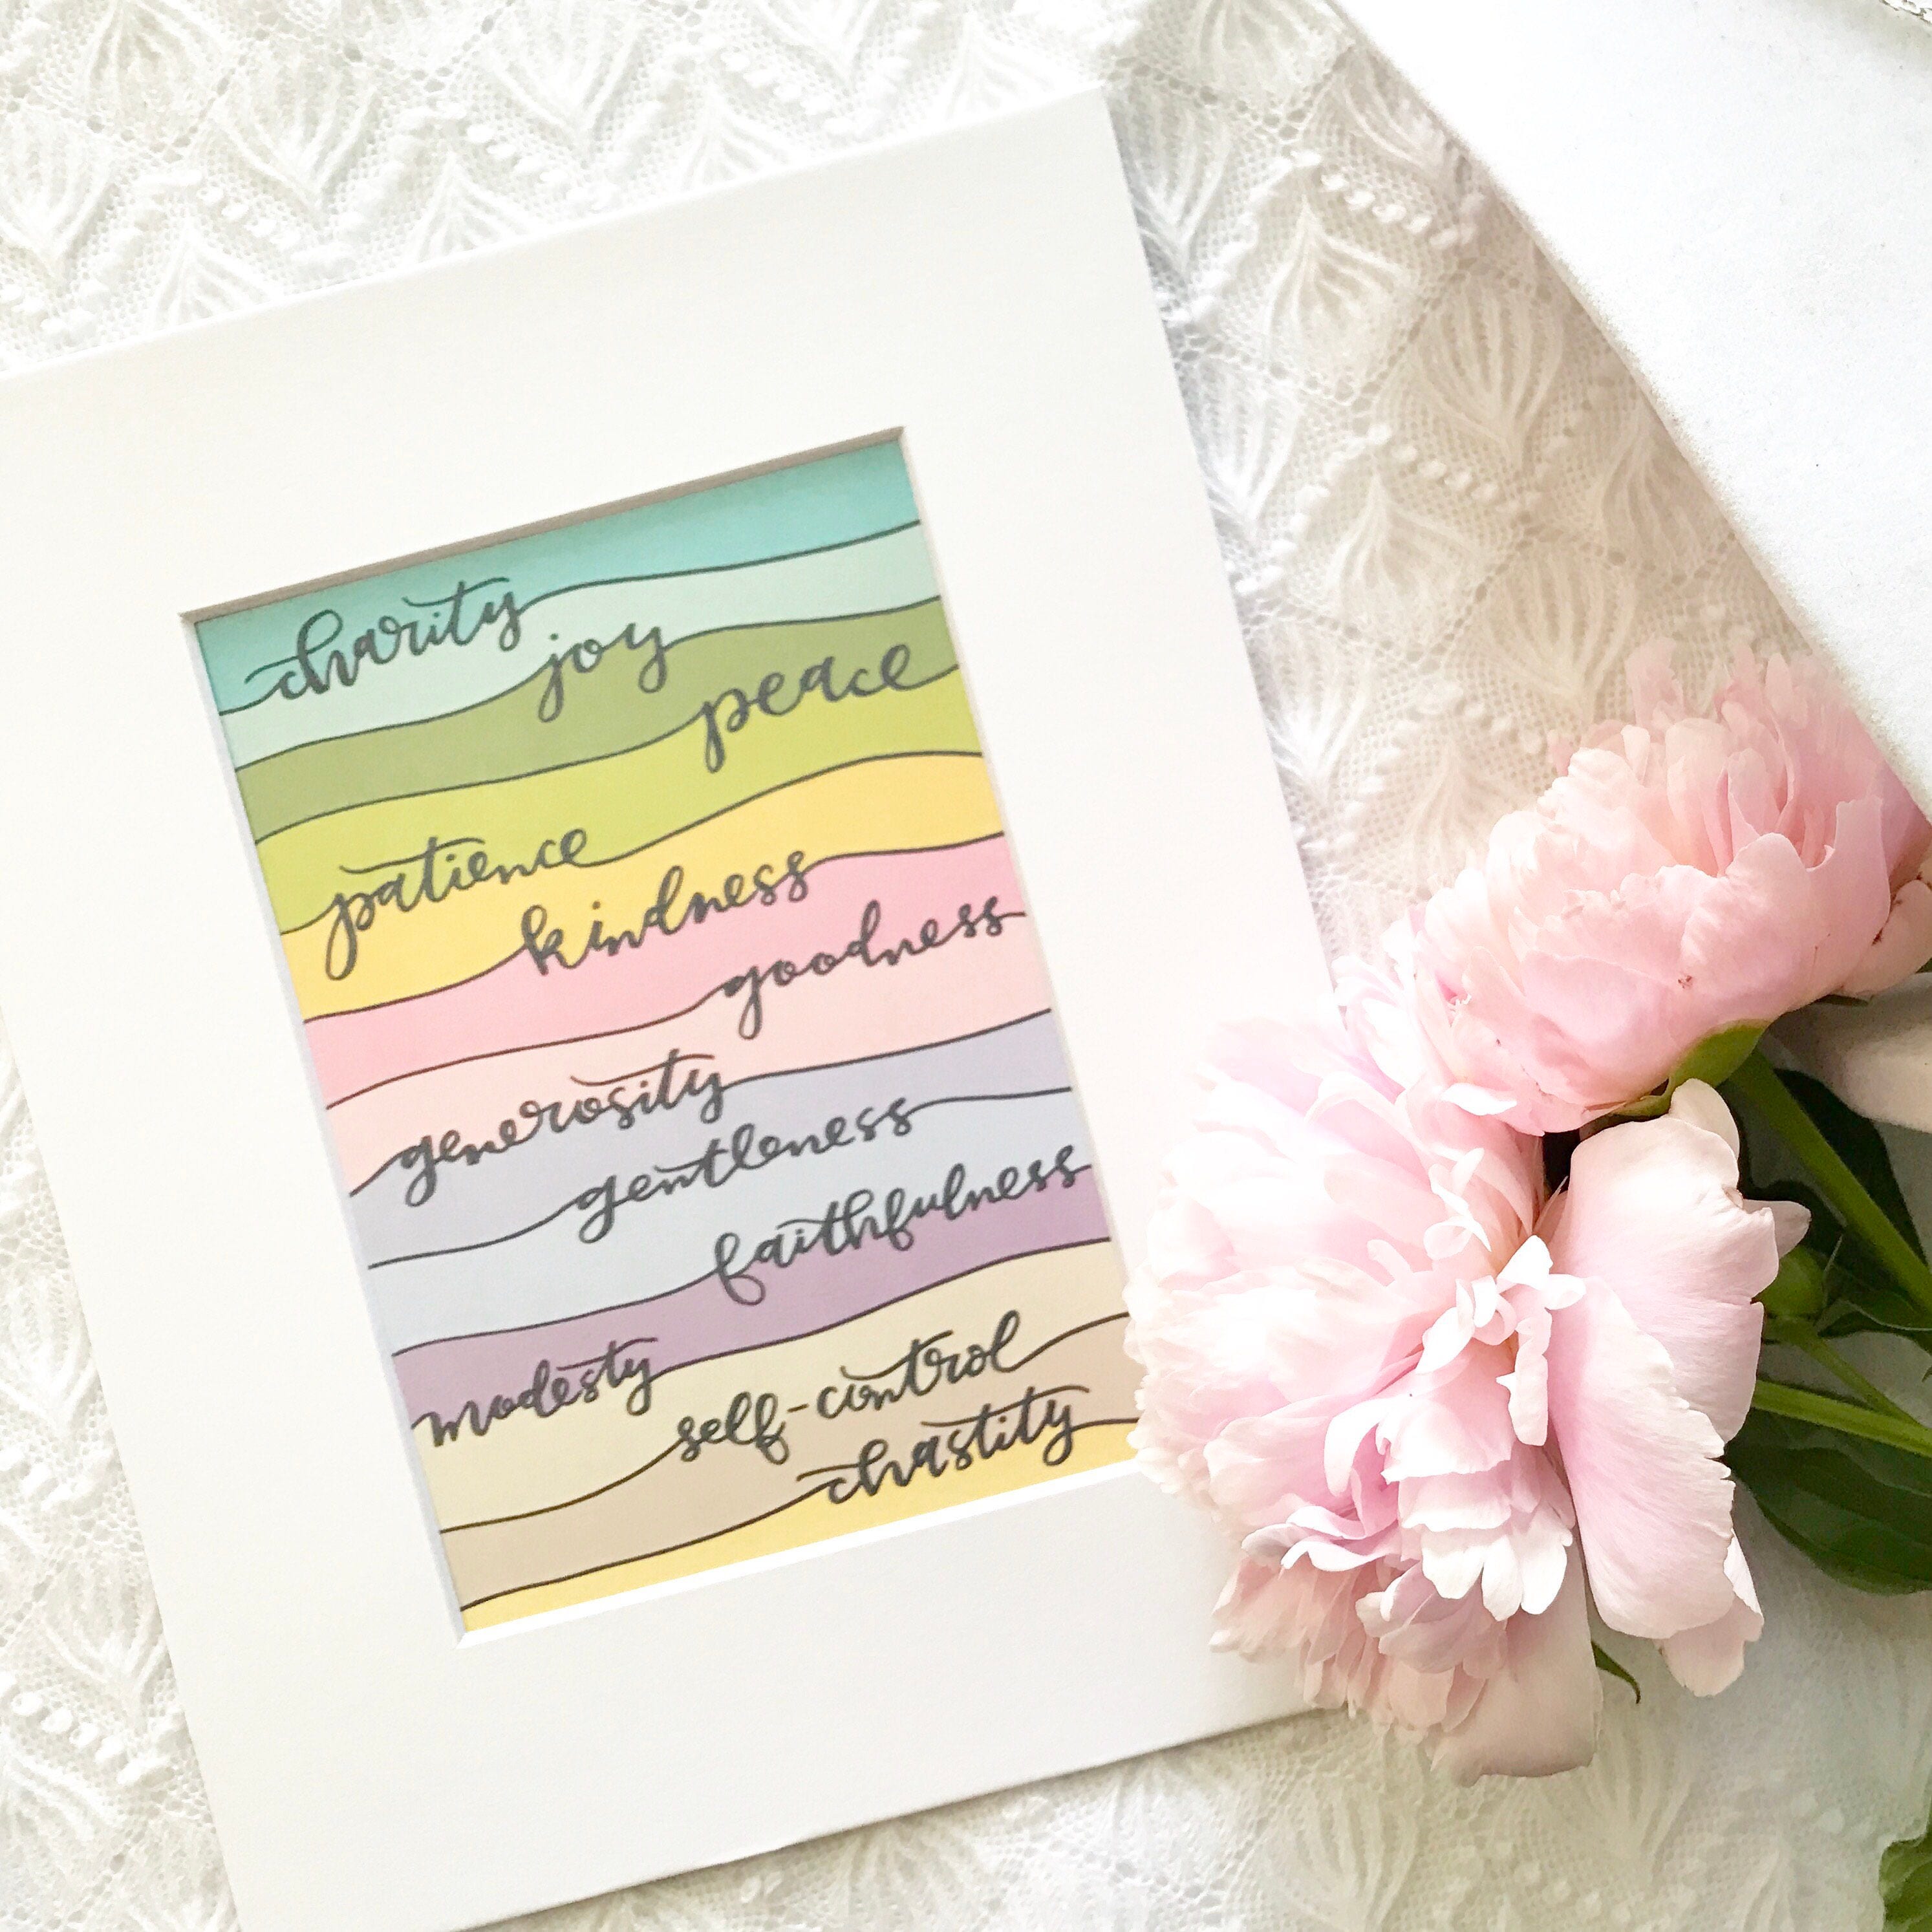 charity
joy
peace
patience
kindness
goodness
generosity
gentleness
faithfulness
modesty
self-control
chastity